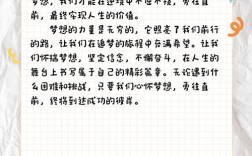 梦想，我们才能在逆境中不屈不挠，勇往直
前，最终实现人生的价值。
梦想的力量是无穷的，它照亮了我们前行
的路，让我们在追梦的旅程中充满希望。让我
们怀揣梦想，坚定信念，不懈奋斗，在人生的
舞台上书写属于自己的精彩篇章。无论遇到什
么困难和挑战，只要我们心怀梦想，勇往直
前，终将到达成功的彼岸。